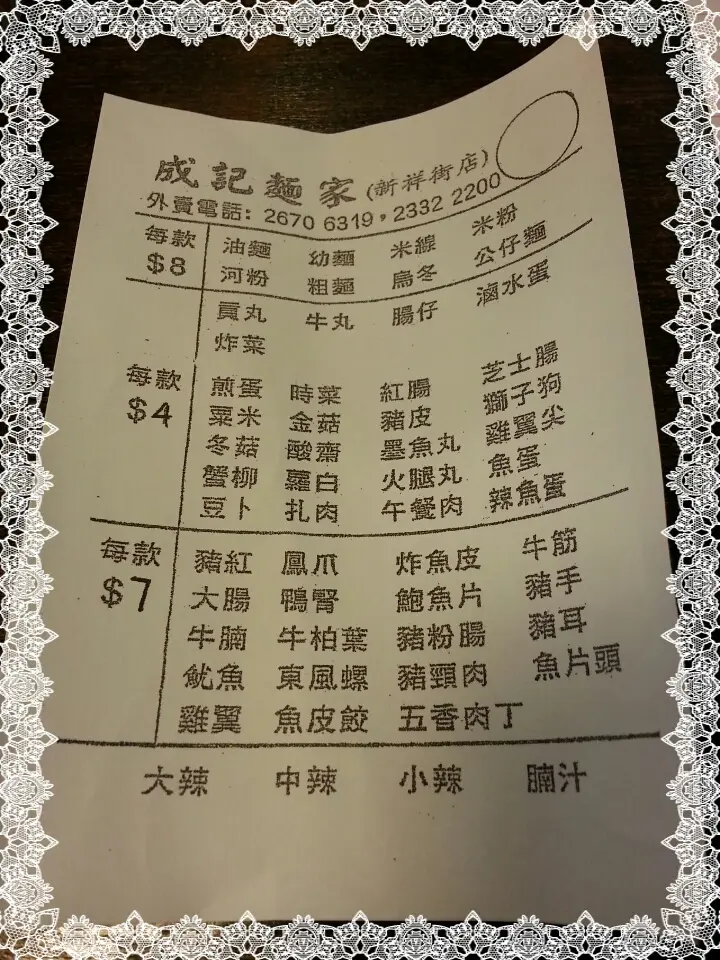 成記麵家(新祥街店)
外賣電話: 2670 6319，2332 2200
每款 油麵 幼麵 米線 米粉
$8 河粉 粗麵 烏冬 公仔麵
貢丸 牛丸 腸仔 滷水蛋
炸菜
每款 煎蛋 時菜 紅腸 芝士腸
$4 粟米 金菇 豬皮 獅子狗
冬菇 酸齋 墨魚丸 雞翼尖
蟹柳 蘿白 火腿丸 魚蛋
豆卜 扎肉 午餐肉 辣魚蛋
每款 豬紅 鳳爪 炸魚皮 牛筋
$7 大腸 鴨腎 鮑魚片 豬手
牛腩 牛柏葉 豬粉腸 豬耳
魷魚 東風螺 豬頸肉 魚片頭
雞翼 魚皮餃 五香肉丁
大辣 中辣 小辣 腩汁